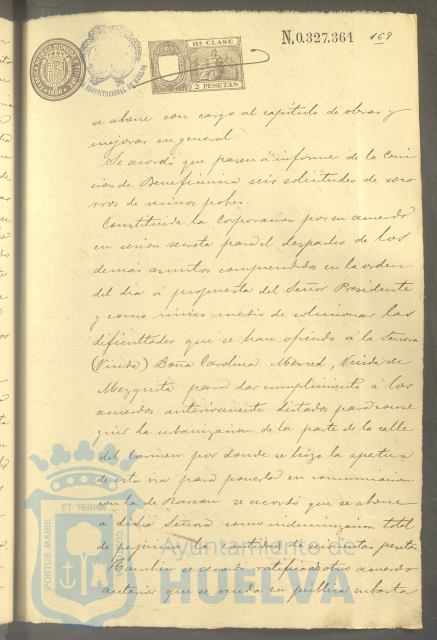 N.0.327.361
169
11ª CLASE
2 PESETAS
1898
CONSTITUCIONAL DE HUELVA
se abone con cargo al capítulo de obras y
mejoras en general
Se acordó que pasen á informe de la Comi
sión de Beneficencia seis solicitudes de soco
rros de niños pobres.
Constituida la Corporacion por su acuerdo
en sesion secreta para el despacho de los
demas asuntos comprendidos en la orden
del dia á propuesta del Señor Presidente
y como único medio de solucionar las
dificultades que se han ofrecido á la Señora
(Viuda) Doña Carolina Merced, Viuda de
Mezquita para dar cumplimiento á los
acuerdos anteriormente dictados para conse
guir la urbanizacion de la parte de la calle
del Carmen por donde se hizo la apertura
de esta via para ponerla en comunicacion
con la de Rascon se acordó que se abone
á dicha Señora como indemnizacion total
de perjuicios la cantidad de pesetas
Tambien se acordó ratificar otro acuerdo
anterior que se venda en pública subasta
PORTUS MARIS ET TERRÆ CUSTODIA
Ayuntamiento de
HUELVA